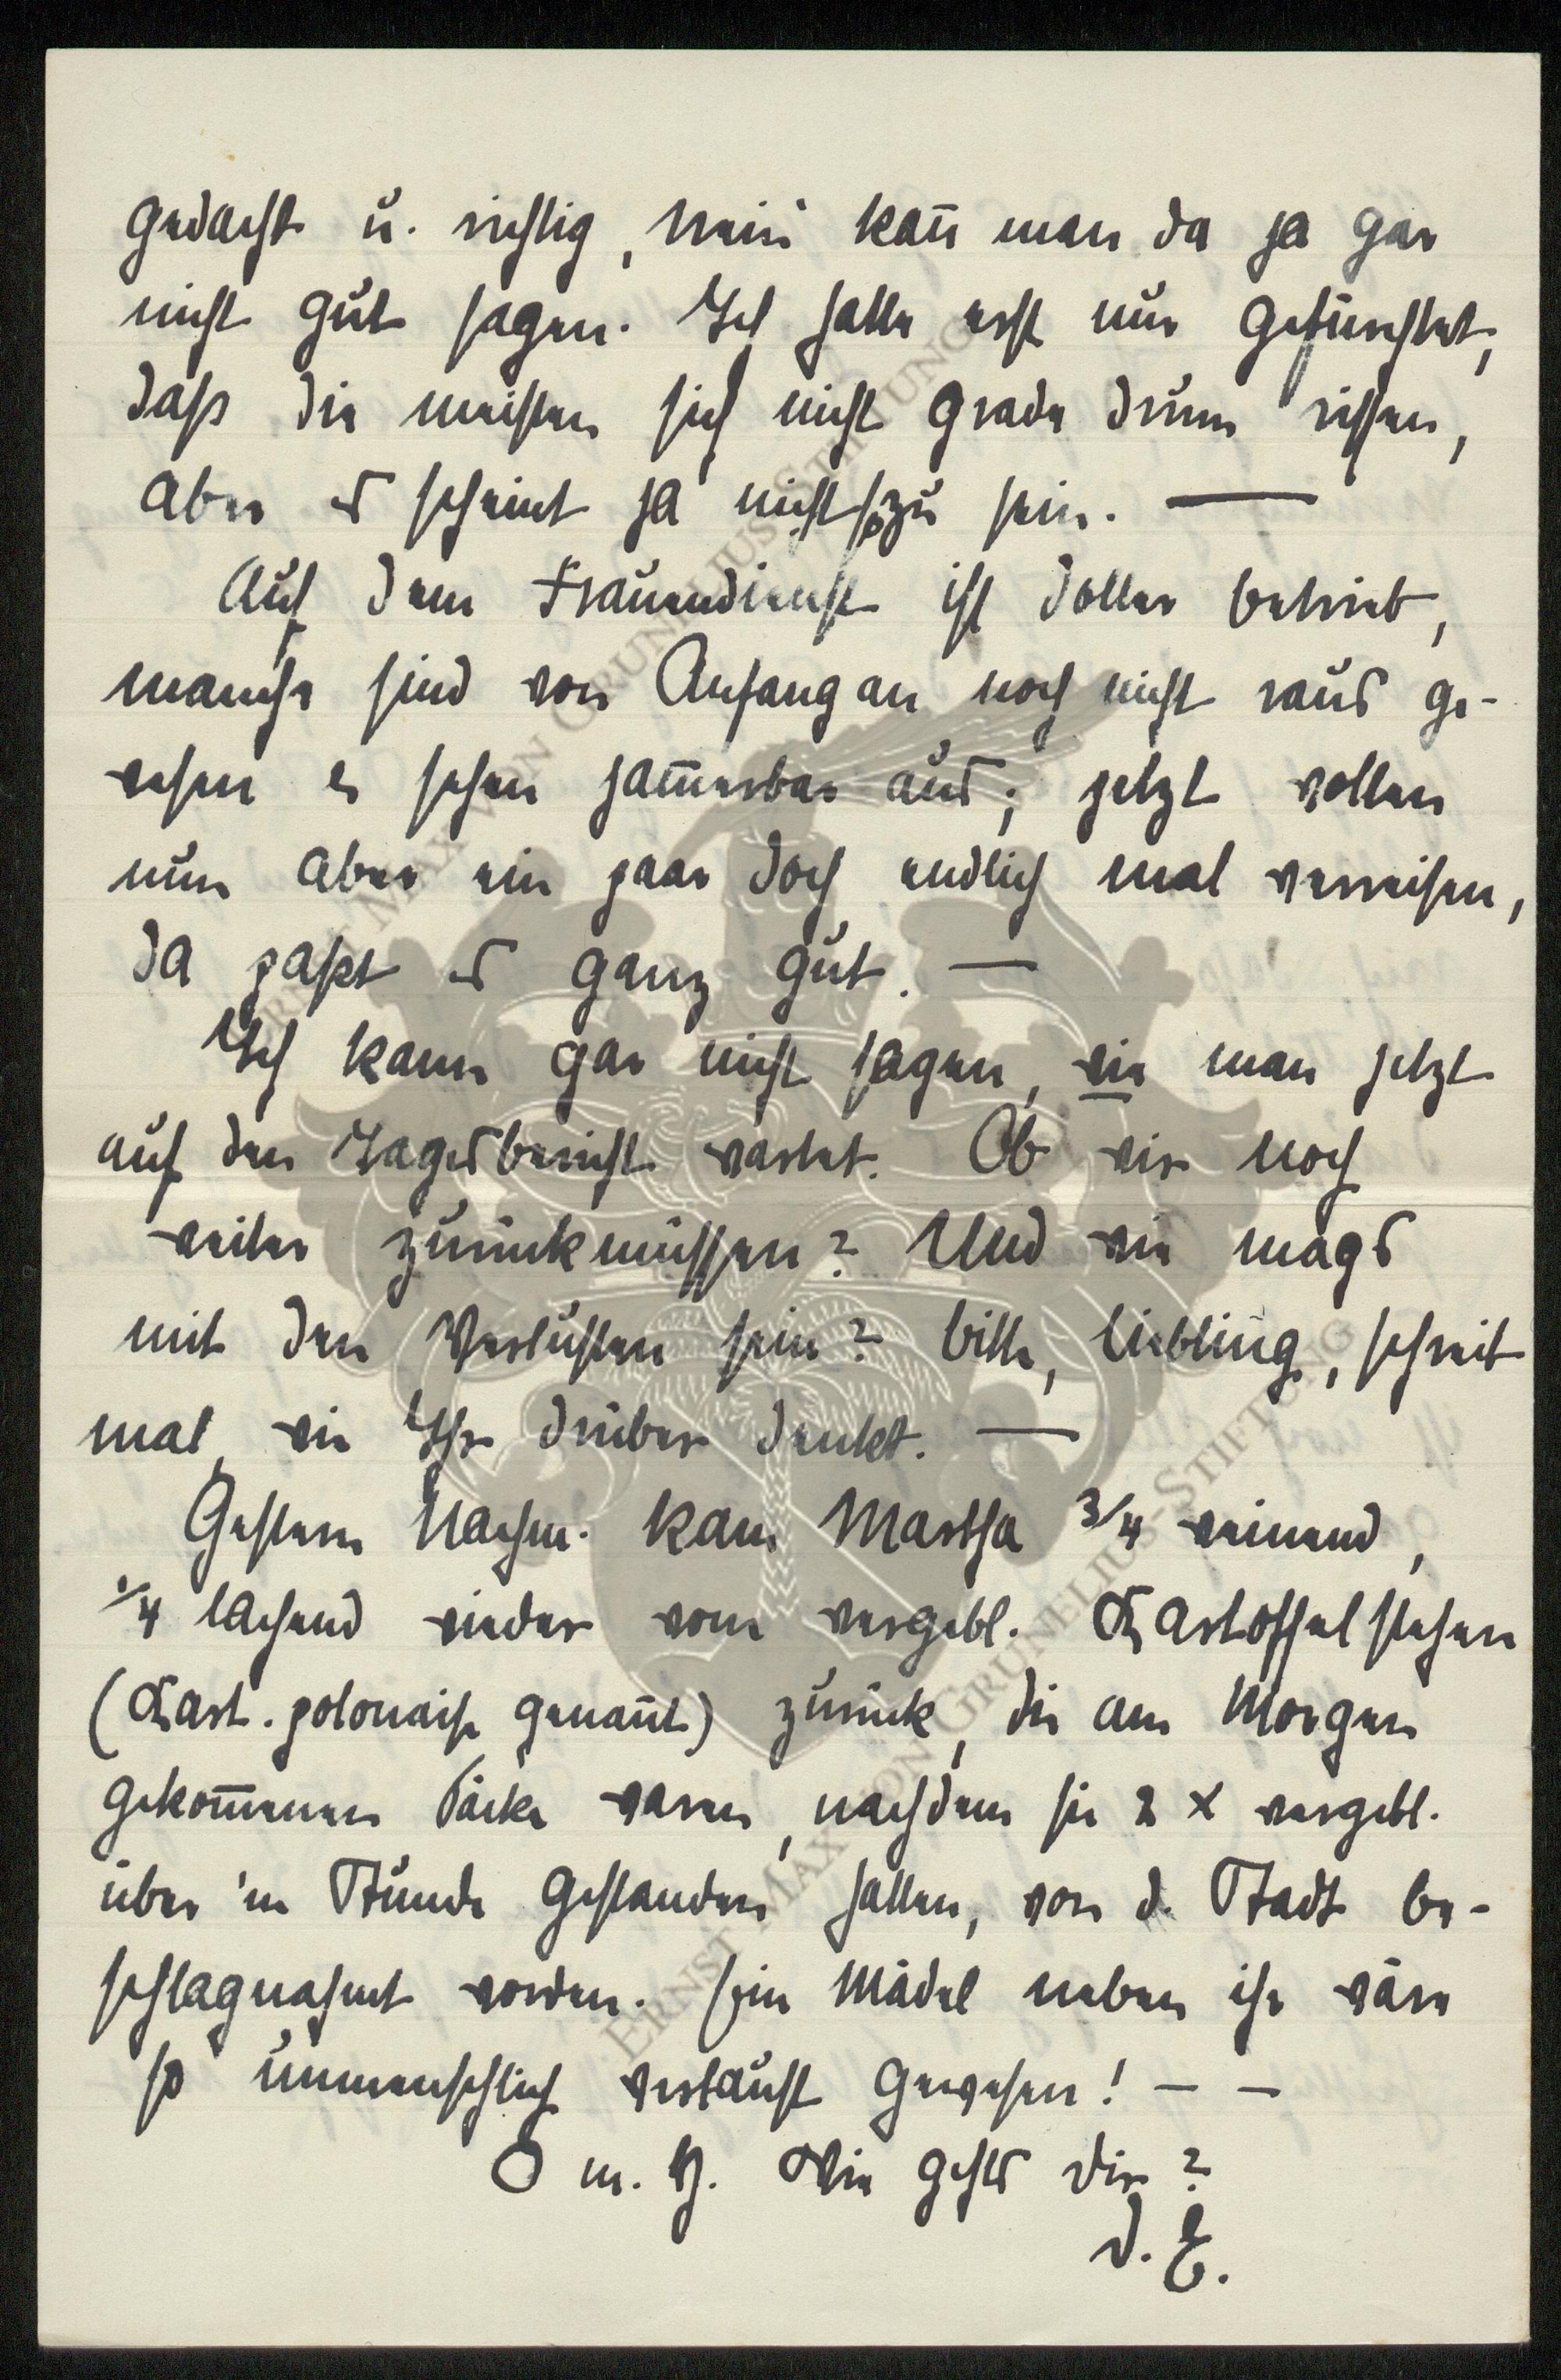 gedacht u. richtig, nein kañ man da ja gar
nicht gut sagen. Ich hatte erst nur gefürchtet,
daß die meisten sich nicht grade drum rissen,
aber es scheint ja nicht so zu sein. —
Auf dem Frauendienst ist doller betrieb,
manche sind von Anfang an noch nicht raus ge-
wesen u. sehen jam̄erbar aus; jetzt wollen
nun aber ein paar doch endlich mal verreisen,
da paßt es ganz gut. —
Ich kann gar nicht sagen, wie man jetzt
auf den Tagesbericht wartet. Ob wir noch
weiter zurückmüssen? Und wie mags
mit den Verlusten sein? bitte, liebling, schreib
mal, wie Ihr drüber denkt. —
Gestern Nachm. kam Martha 3/4 weinend,
1/4 lachend wieder vom vergebl. Kartoffelstehen
(Kart. polonaise genañt) zurück, die am Morgen
gekom̄enen Säcke waren, nachdem sie 2 x vergebl.
über 'n Stunde gestanden hatten, von d. Stadt be-
schlagnahmt worden. Ein Mädel neben ihr wäre
so unmenschlich verlaust gewesen! — —
O m. H. Wie gehts Dir?
D. E.
ERNST MAX VON GRUNELIUS-STIFTUNG
ERNST MAX VON GRUNELIUS-STIFTUNG